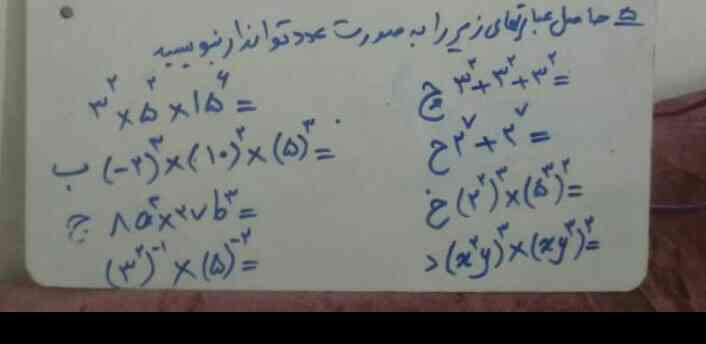 ۵ حاصل عبارتهای زیر را به صورت عدد تواندار بنویسید
۳^۲ × ۵^۲ × ۱۵^۶ =
ب (-۲)^۳ × (۱۰)^۳ × (۵)^۳ =
ج ۸a^۳ × ۲۷b^۳ =
(۳^۲)^-۱ × (۵)^-۲ =
چ ۳^۲ + ۳^۲ + ۳^۲ =
ح ۲^۷ + ۲^۷ =
خ (۲^۲)^۳ × (۵^۳)^۲ =
د (x^۲y)^۳ × (xy^۲)^۳ =